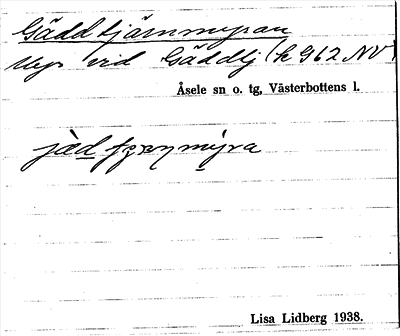 Gäddtjärnmyran
Myr vid Gäddtj (k 962 NV)
Åsele sn o. tg, Västerbottens l.
jäd myra
Lisa Lidberg 1938.